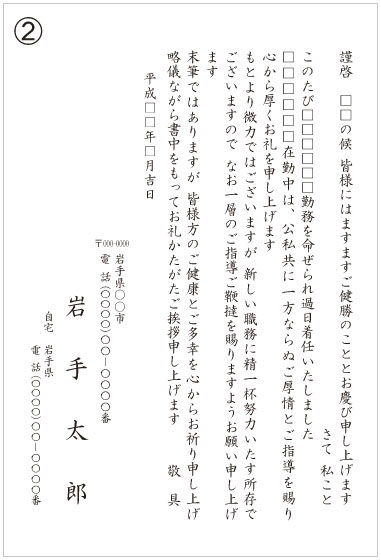 ②
謹啓　□□の候 皆様にはますますご健勝のこととお慶び申し上げます
さて 私こと
このたび□□□□□□勤務を命ぜられ過日着任いたしました
□□□□□□在勤中は、公私共に一方ならぬご厚情とご指導を賜り
心から厚くお礼を申し上げます
もとより微力ではございますが 新しい職務に精一杯努力いたす所存で
ございますので なお一層のご指導ご鞭撻を賜りますようお願い申し上げ
ます
末筆ではありますが 皆様方のご健康とご多幸を心からお祈り申し上げ
略儀ながら書中をもってお礼かたがたご挨拶申し上げます　敬　具
平成□□年□月吉日
〒000-0000
岩手県○○市
電 話 (○○○○)○○－○○○○番
岩　手　太　郎
自宅　岩手県
電 話 (○○○○)○○－○○○○番